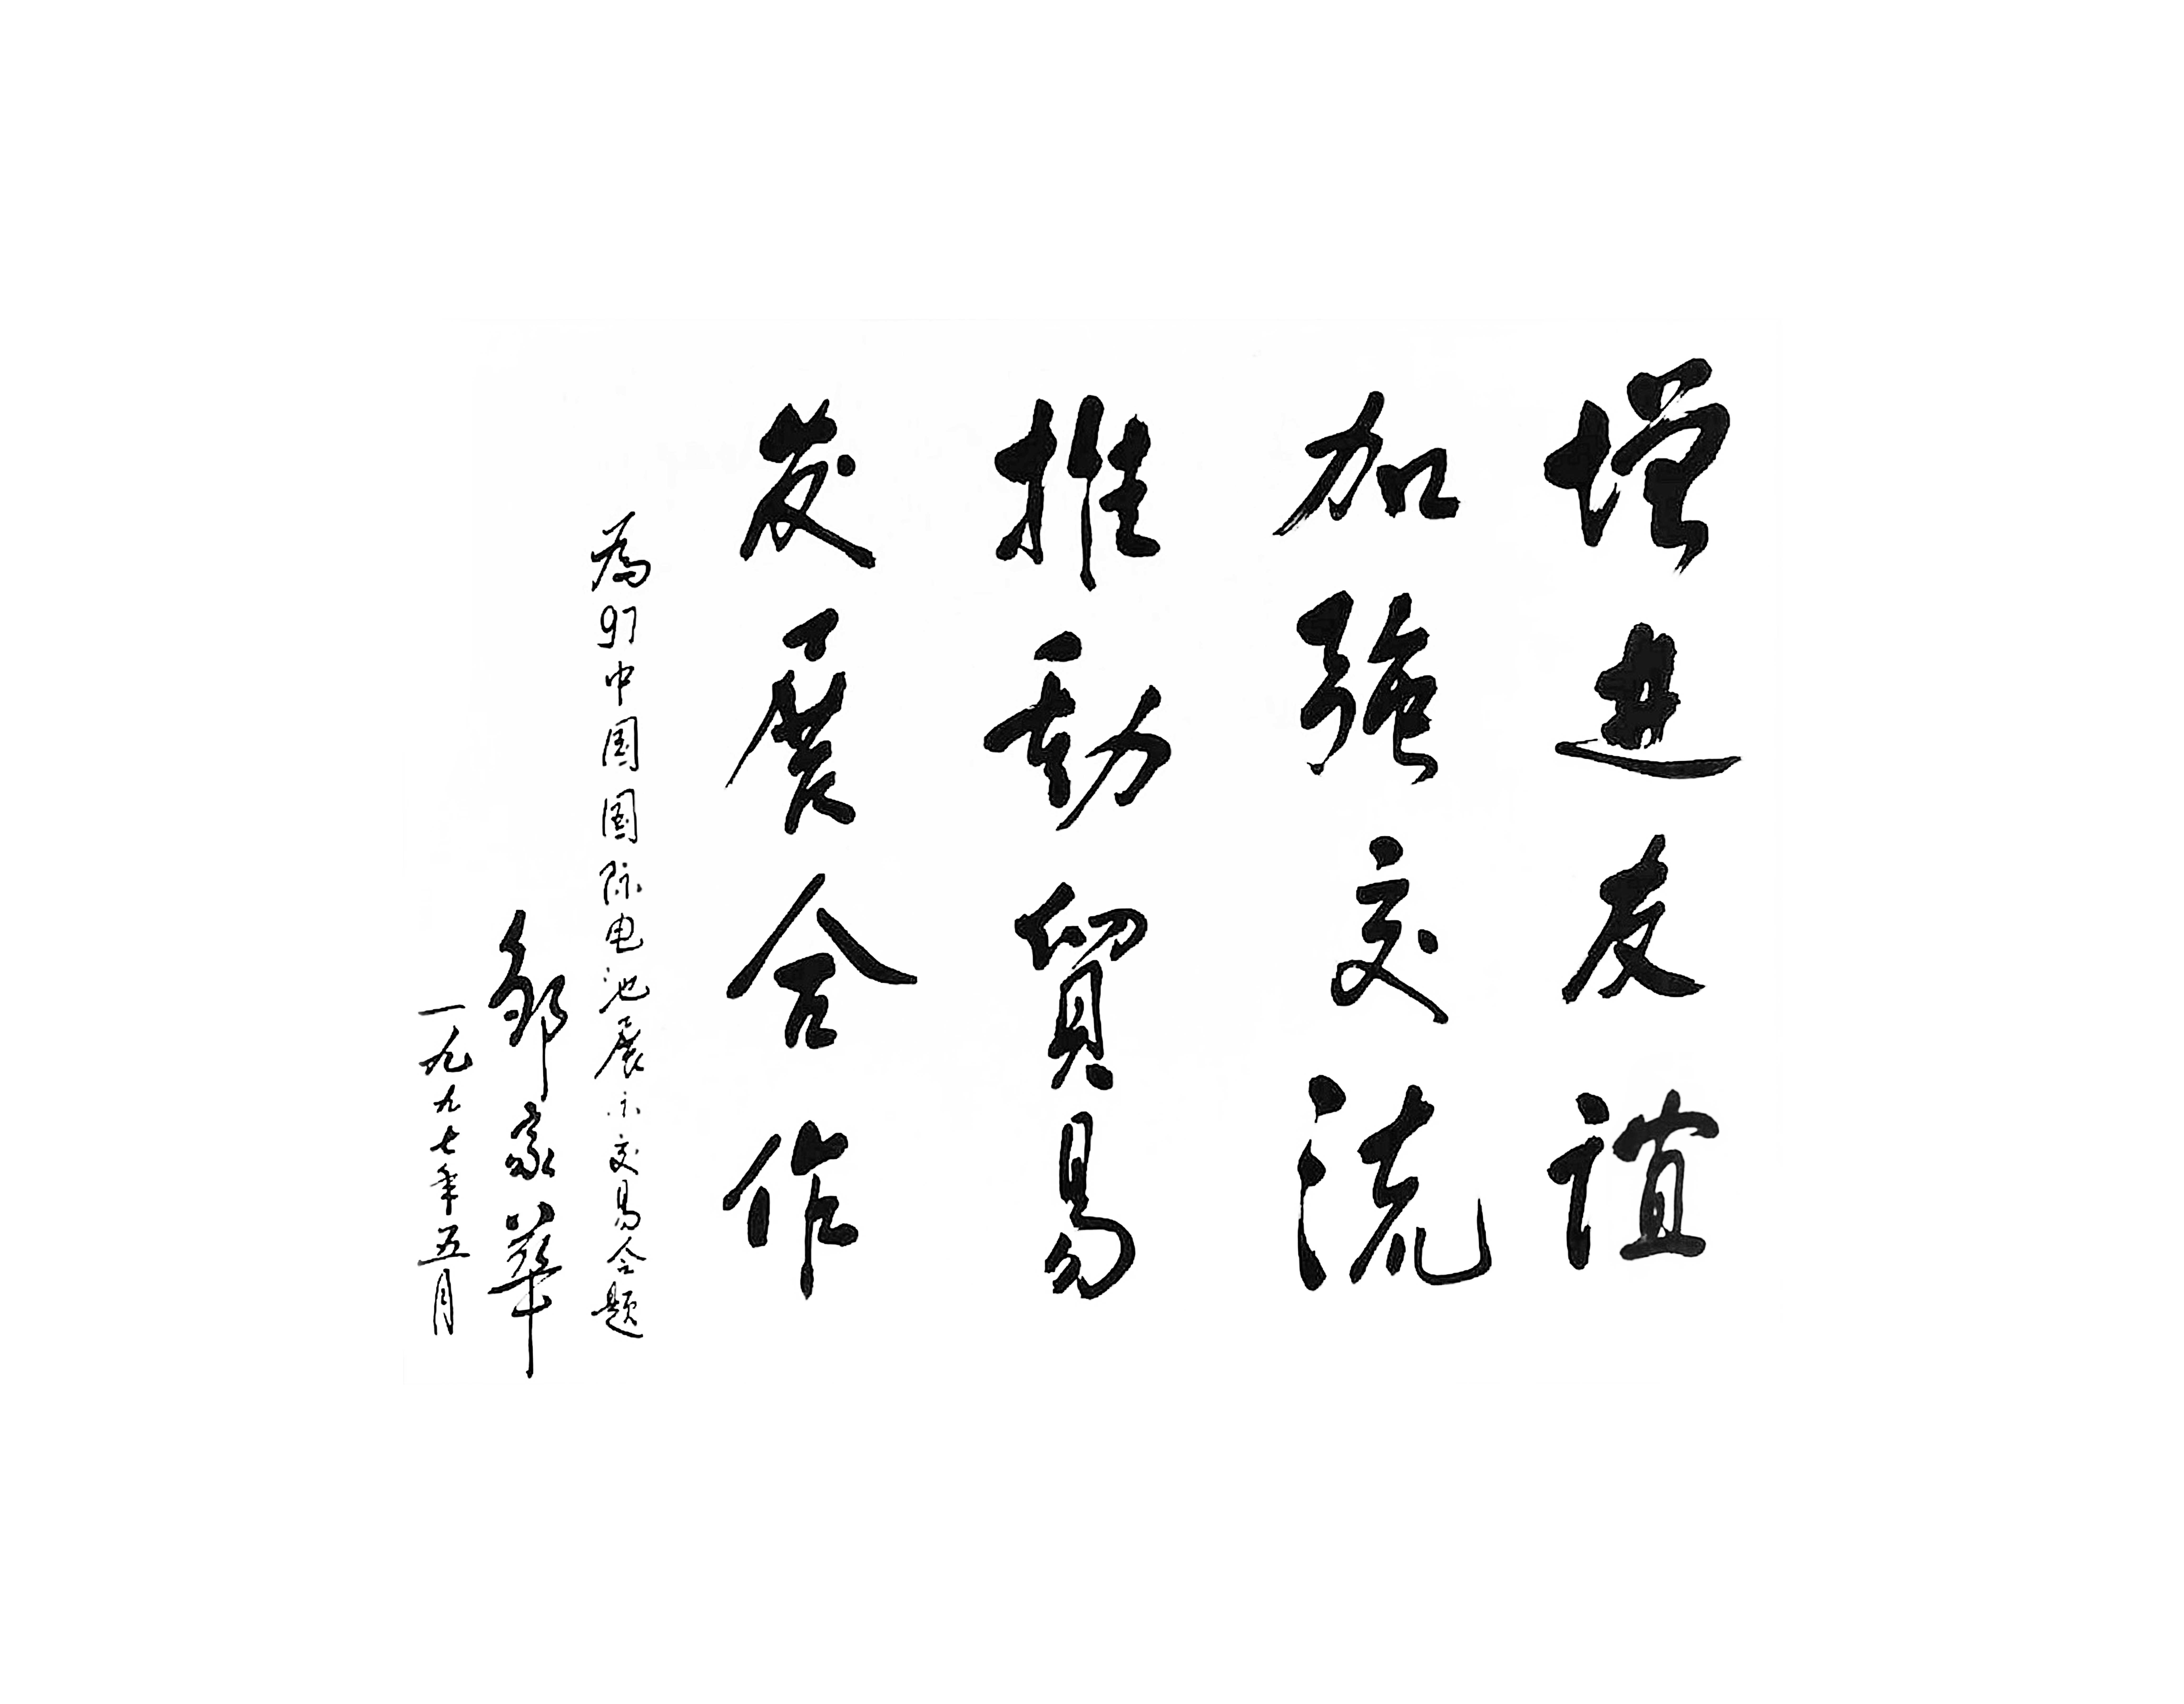 增进友谊
加强交流
推动贸易
发展合作
为97中国国际电池展示交易会题
邹家华
一九九七年五月